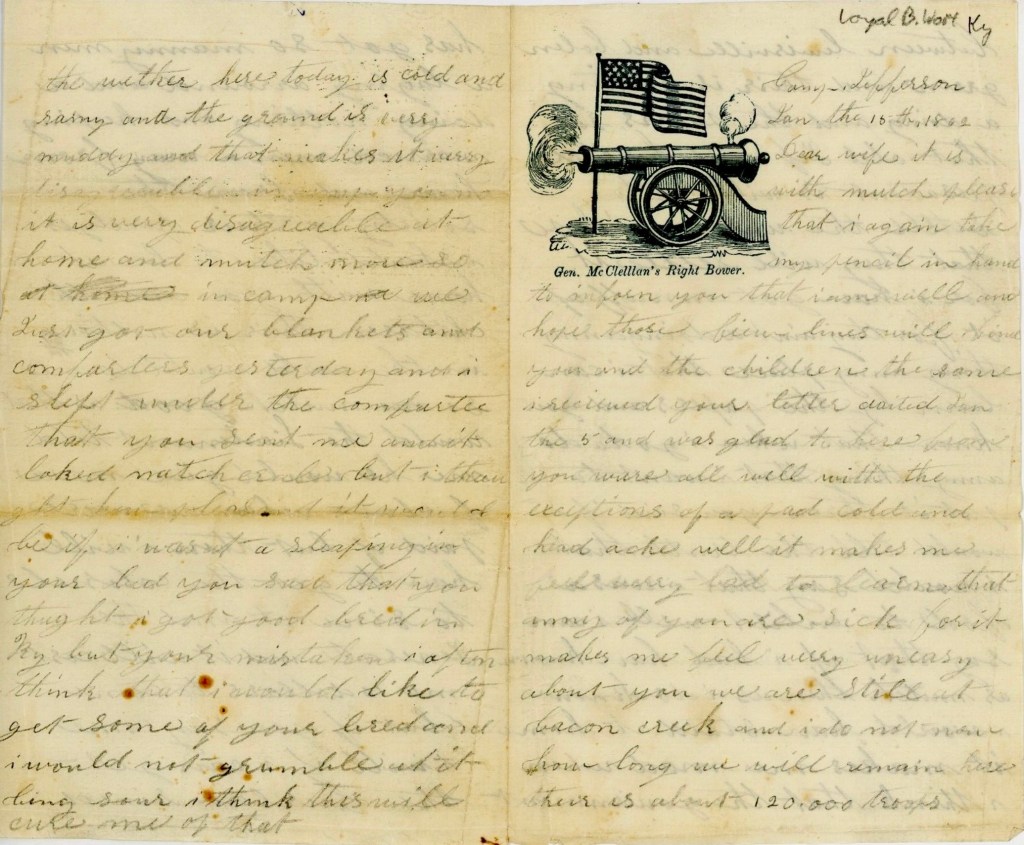 Loyal B. Wort Ky
the wether here today is cold and
rainy and the ground is verry
muddy and that makes it verry
in camp you no
it is verry disagreeable at
home and mutch more so
at home in camp we
Just got our blankets and
comfartees yesterday and i
slept under the compartee
that you sent me and it
loked natcherl but i thou
ght how pleasant it would
be if i was at a sleaping in
your bed you sad that you
thught i got good bred in
Ky but your mistaken i often
think that i would like to
get some of your bred and
i would not grumble at it
bing sour i think this will
cure me of that
Camp Jepperson
Jan the 15th, 1862
Dear wife it is
with mutch pleasi
that i again take
my pencil in hand
Gen. Mc Clelllan's Right Bower.
to inforn you that i am well and
hope those fiew lines will find
you and the children the same
i recieved your letter daited Jan
the 5 and was glad to here from
you ware all well with the
exceptions of a pad cold and
head ache well it makes me
feel verry bad to learn that
anny of you are sick for it
makes me feel verry uneasy
about you we are still at
bacon creek and i do not now
how long we will remain here
their is about 120.000 troops